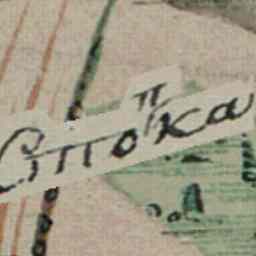 Стопка